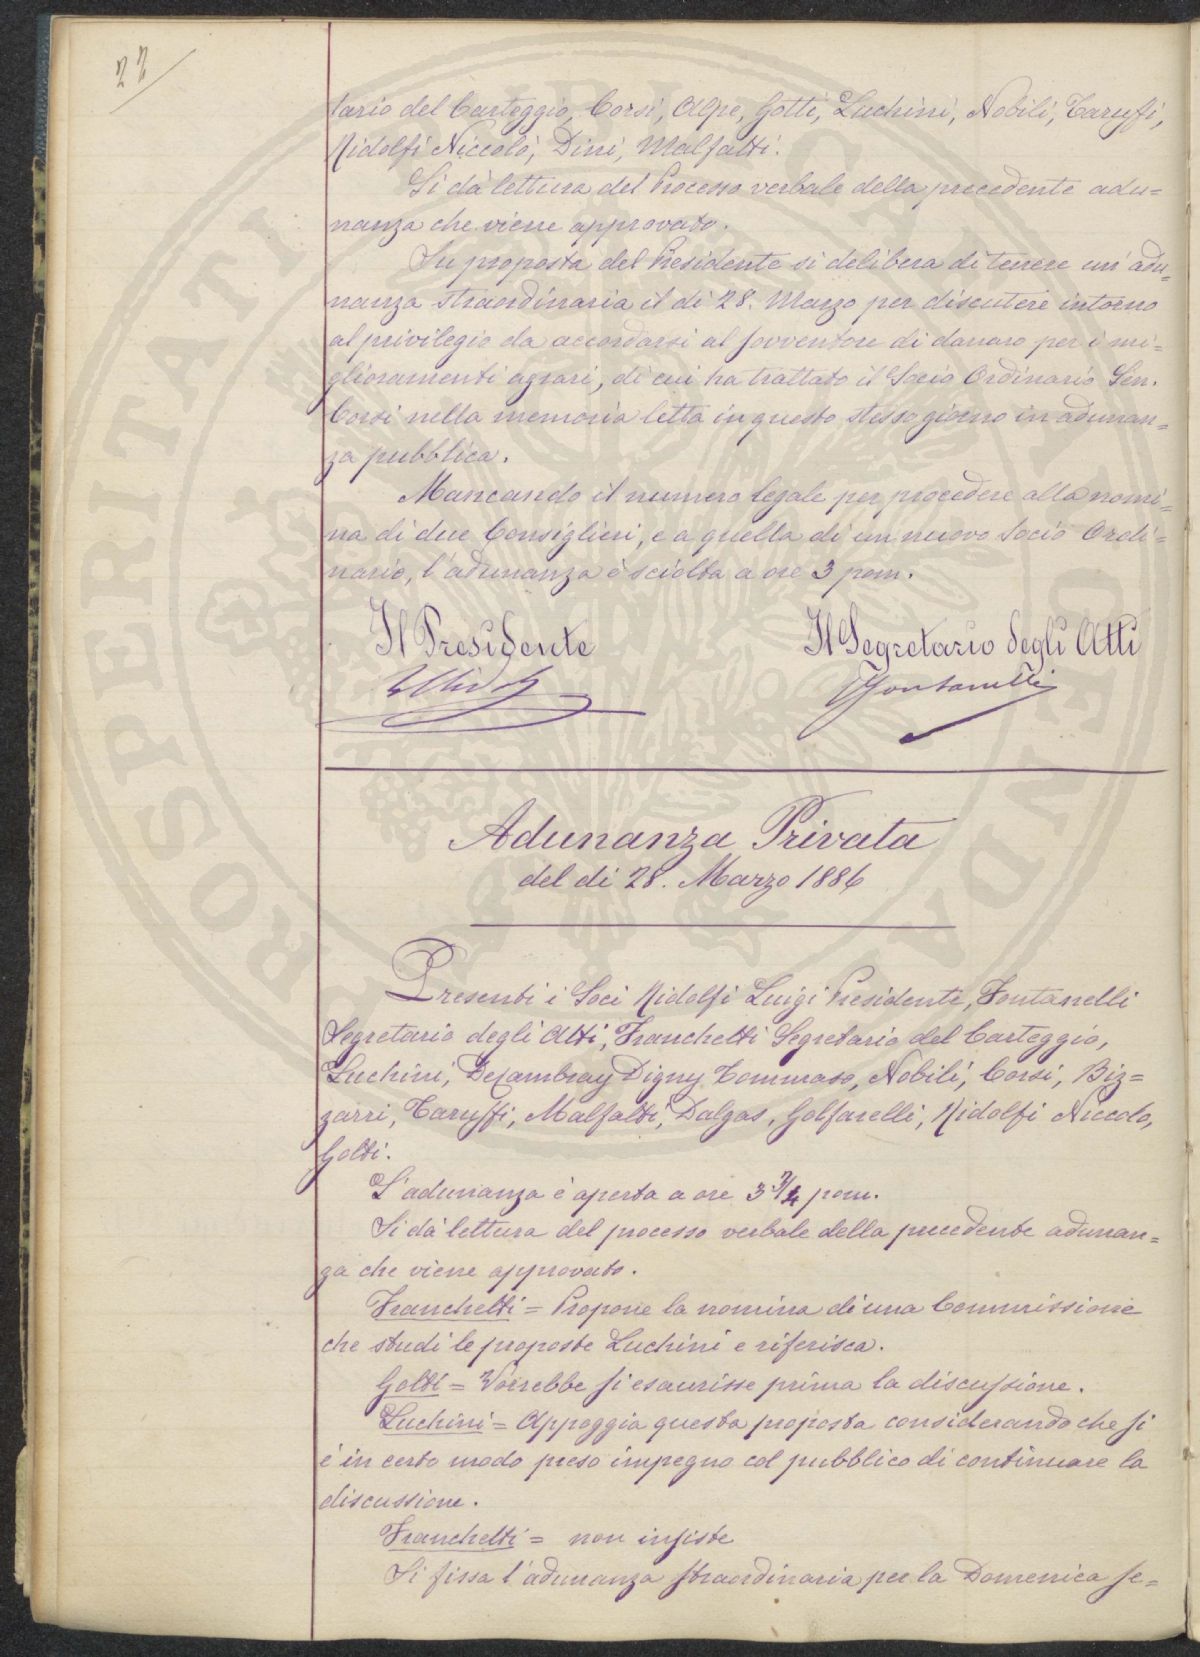 22
tario del Carteggio, Corsi, Alpe, Gotti, Luchini, Nobili, Taruffi,
Ridolfi Niccolò, Dini, Malfatti.
Si dà lettura del Processo verbale della precedente adu=
nanza che viene approvato.
Su proposta del Presidente si delibera di tenere un'adu=
nanza straordinaria il dì 28. Marzo per discutere intorno
al privilegio da accordarsi al sovventore di danaro per i mi=
glioramenti agrari, di cui ha trattato il Socio Ordinario Sen.
Corsi nella memoria letta in questo stesso giorno in adunan=
za pubblica.
Mancando il numero legale per procedere alla nomi=
na di due Consiglieri, e a quella di un nuovo Socio Ordi=
nario, l'adunanza è sciolta a ore 3 pom.
Il Presidente Il Segretario degli Atti
LRidolfi Fontanelli
Adunanza Privata
del dì 28. Marzo 1886
Presenti i Soci Ridolfi Luigi Presidente, Fontanelli
Segretario degli Atti, Franchetti Segretario del Carteggio,
Luchini, DeCambray Digny Tommaso, Nobili, Corsi, Biz=
zarri, Taruffi, Malfatti, Dalgas, Golfarelli, Ridolfi Niccolo,
Gotti.
L'adunanza è aperta a ore 3 3/4 pom.
Si dà lettura del processo verbale della precedente adunan=
za che viene approvato.
Franchetti = Propone la nomina di una Commissione
che studi le proposte Luchini e riferisca.
Gotti = Vorrebbe si esaurisse prima la discussione.
Luchini = Appoggia questa proposta considerando che si
è in certo modo preso impegno col pubblico di continuare la
discussione.
Franchetti = non insiste
Si fissa l'adunanza straordinaria per la Domenica se=
PROSPERITATI PUBLICAE AUGENDAE